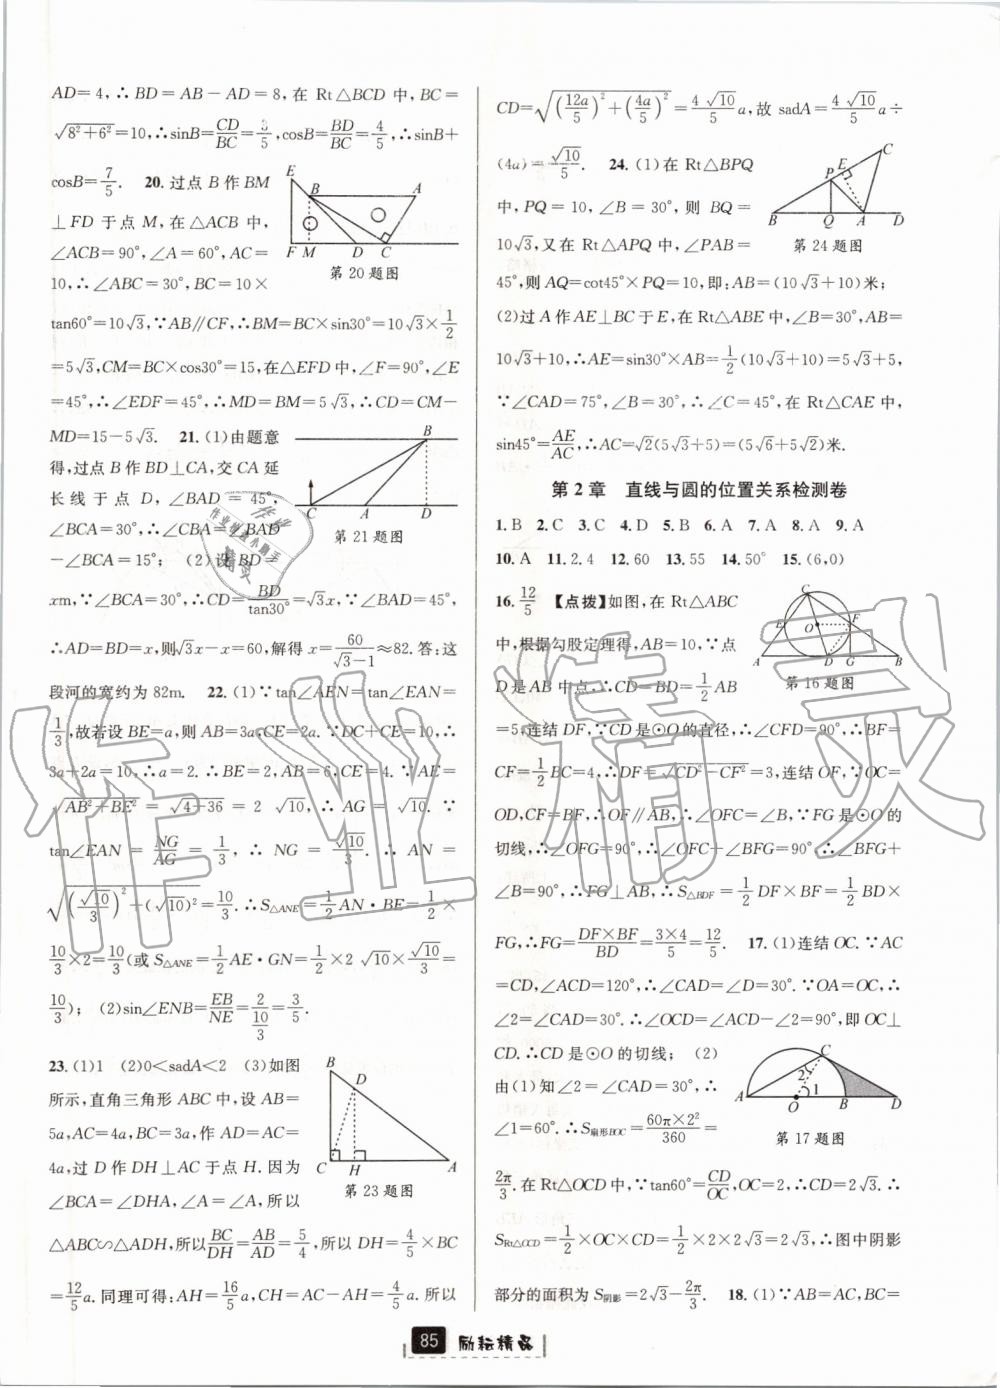 AD=4,∴BD=AB-AD=8,在 Rt△BCD 中,BC=
√(8²+6²)=10,∴sinB=CD/BC=3/5,cosB=BD/BC=4/5,∴sinB+
cosB=7/5. 20.过点 B 作 BM
⊥FD 于点 M,在△ACB 中,
∠ACB=90°,∠A=60°,AC=
10,∴∠ABC=30°,BC=10×
E B A F M D C
第 20 题图
tan60°=10√3,∵AB∥CF,∴BM=BC×sin30°=10√3×1/2
=5√3,CM=BC×cos30°=15,在△EFD 中,∠F=90°,∠E
=45°,∴∠EDF=45°,∴MD=BM=5√3,∴CD=CM-
MD=15-5√3. 21.(1)由题意
得,过点 B 作 BD⊥CA,交 CA 延
长线于点 D,∠BAD=45°,
∠BCA=30°,∴∠CBA=∠BAD
-∠BCA=15°; (2)设 BD=
B C A D
第 21 题图
xm,∵∠BCA=30°,∴CD=BD/tan30°=√3x,∵∠BAD=45°,
∴AD=BD=x,则√3x-x=60,解得 x=60/(√3-1)≈82.答:这
段河的宽约为 82m. 22.(1)∵tan∠AEN=tan∠EAN=
1/3,故若设 BE=a,则 AB=3a,CE=2a.∵DC+CE=10,∴
3a+2a=10,∴a=2.∴BE=2,AB=6,CE=4.∵AE=
√(AB²+BE²)=√(4+36)=2√10,∴AG=√10.∵
tan∠EAN=NG/AG=1/3,∴NG=√10/3.∴AN=
√((√10/3)²+(√10)²)=10/3.∴S△ANE=1/2AN·BE=1/2×
10/3×2=10/3(或 S△ANE=1/2AE·GN=1/2×2√10×√10/3=
10/3); (2)sin∠ENB=EB/NE=2/(10/3)=3/5.
23.(1)1 (2)0<sadA<2 (3)如图
所示,直角三角形 ABC 中,设 AB=
5a,AC=4a,BC=3a,作 AD=AC=
4a,过 D 作 DH⊥AC 于点 H.因为
∠BCA=∠DHA,∠A=∠A,所以
B D C H A
第 23 题图
△ABC∽△ADH,所以BC/DH=AB/AD=5/4,所以 DH=4/5×BC
=12/5a.同理可得:AH=16/5a,CH=AC-AH=4/5a,所以
CD=√((12a/5)²+(4a/5)²)=4√10/5a,故 sadA=4√10/5a÷
(4a)=√10/5. 24.(1)在 Rt△BPQ
中,PQ=10,∠B=30°,则 BQ=
10√3,又在 Rt△APQ 中,∠PAB=
C E P B Q A D
第 24 题图
45°,则 AQ=cot45°×PQ=10,即:AB=(10√3+10)米;
(2)过 A 作 AE⊥BC 于 E,在 Rt△ABE 中,∠B=30°,AB=
10√3+10,∴AE=sin30°×AB=1/2(10√3+10)=5√3+5,
∵∠CAD=75°,∠B=30°,∴∠C=45°,在 Rt△CAE 中,
sin45°=AE/AC,∴AC=√2(5√3+5)=(5√6+5√2)米.
第 2 章 直线与圆的位置关系检测卷
1.B 2.C 3.C 4.D 5.B 6.A 7.A 8.A 9.A
10.A 11.2.4 12.60 13.55 14.50° 15.(6,0)
16.12/5 【点拨】如图,在 Rt△ABC
中,根据勾股定理得,AB=10,∵点
D 是 AB 中点,∴CD=BD=1/2AB
C E O F A D G B
第 16 题图
=5,连结 DF,∵CD 是⊙O 的直径,∴∠CFD=90°,∴BF=
CF=1/2BC=4,∴DF=√(CD²-CF²)=3,连结 OF,∵OC=
OD,CF=BF,∴OF∥AB,∴∠OFC=∠B,∵FG 是⊙O 的
切线,∴∠OFG=90°,∴∠OFC+∠BFG=∠BFG+
∠B=90°,∴FG⊥AB,∴S△BDF=1/2DF×BF=1/2BD×
FG,∴FG=DF×BF/BD=3×4/5=12/5. 17.(1)连结 OC.∵AC
=CD,∠ACD=120°,∴∠CAD=∠D=30°.∵OA=OC,∴
∠2=∠CAD=30°,∴∠OCD=∠ACD-∠2=90°,即 OC⊥
CD.∴CD 是⊙O 的切线; (2)
由(1)知∠2=∠CAD=30°,∴
∠1=60°.∴S扇形BOC=60π×2²/360=
C 2 1 A O B D
第 17 题图
2π/3.在 Rt△OCD 中,∵tan60°=CD/OC,OC=2,∴CD=2√3.∴
SRt△OCD=1/2×OC×CD=1/2×2×2√3=2√3,∴图中阴影
部分的面积为 S阴影=2√3-2π/3. 18.(1)∵AB=AC,BC=
85 励耘精品
作业精灵